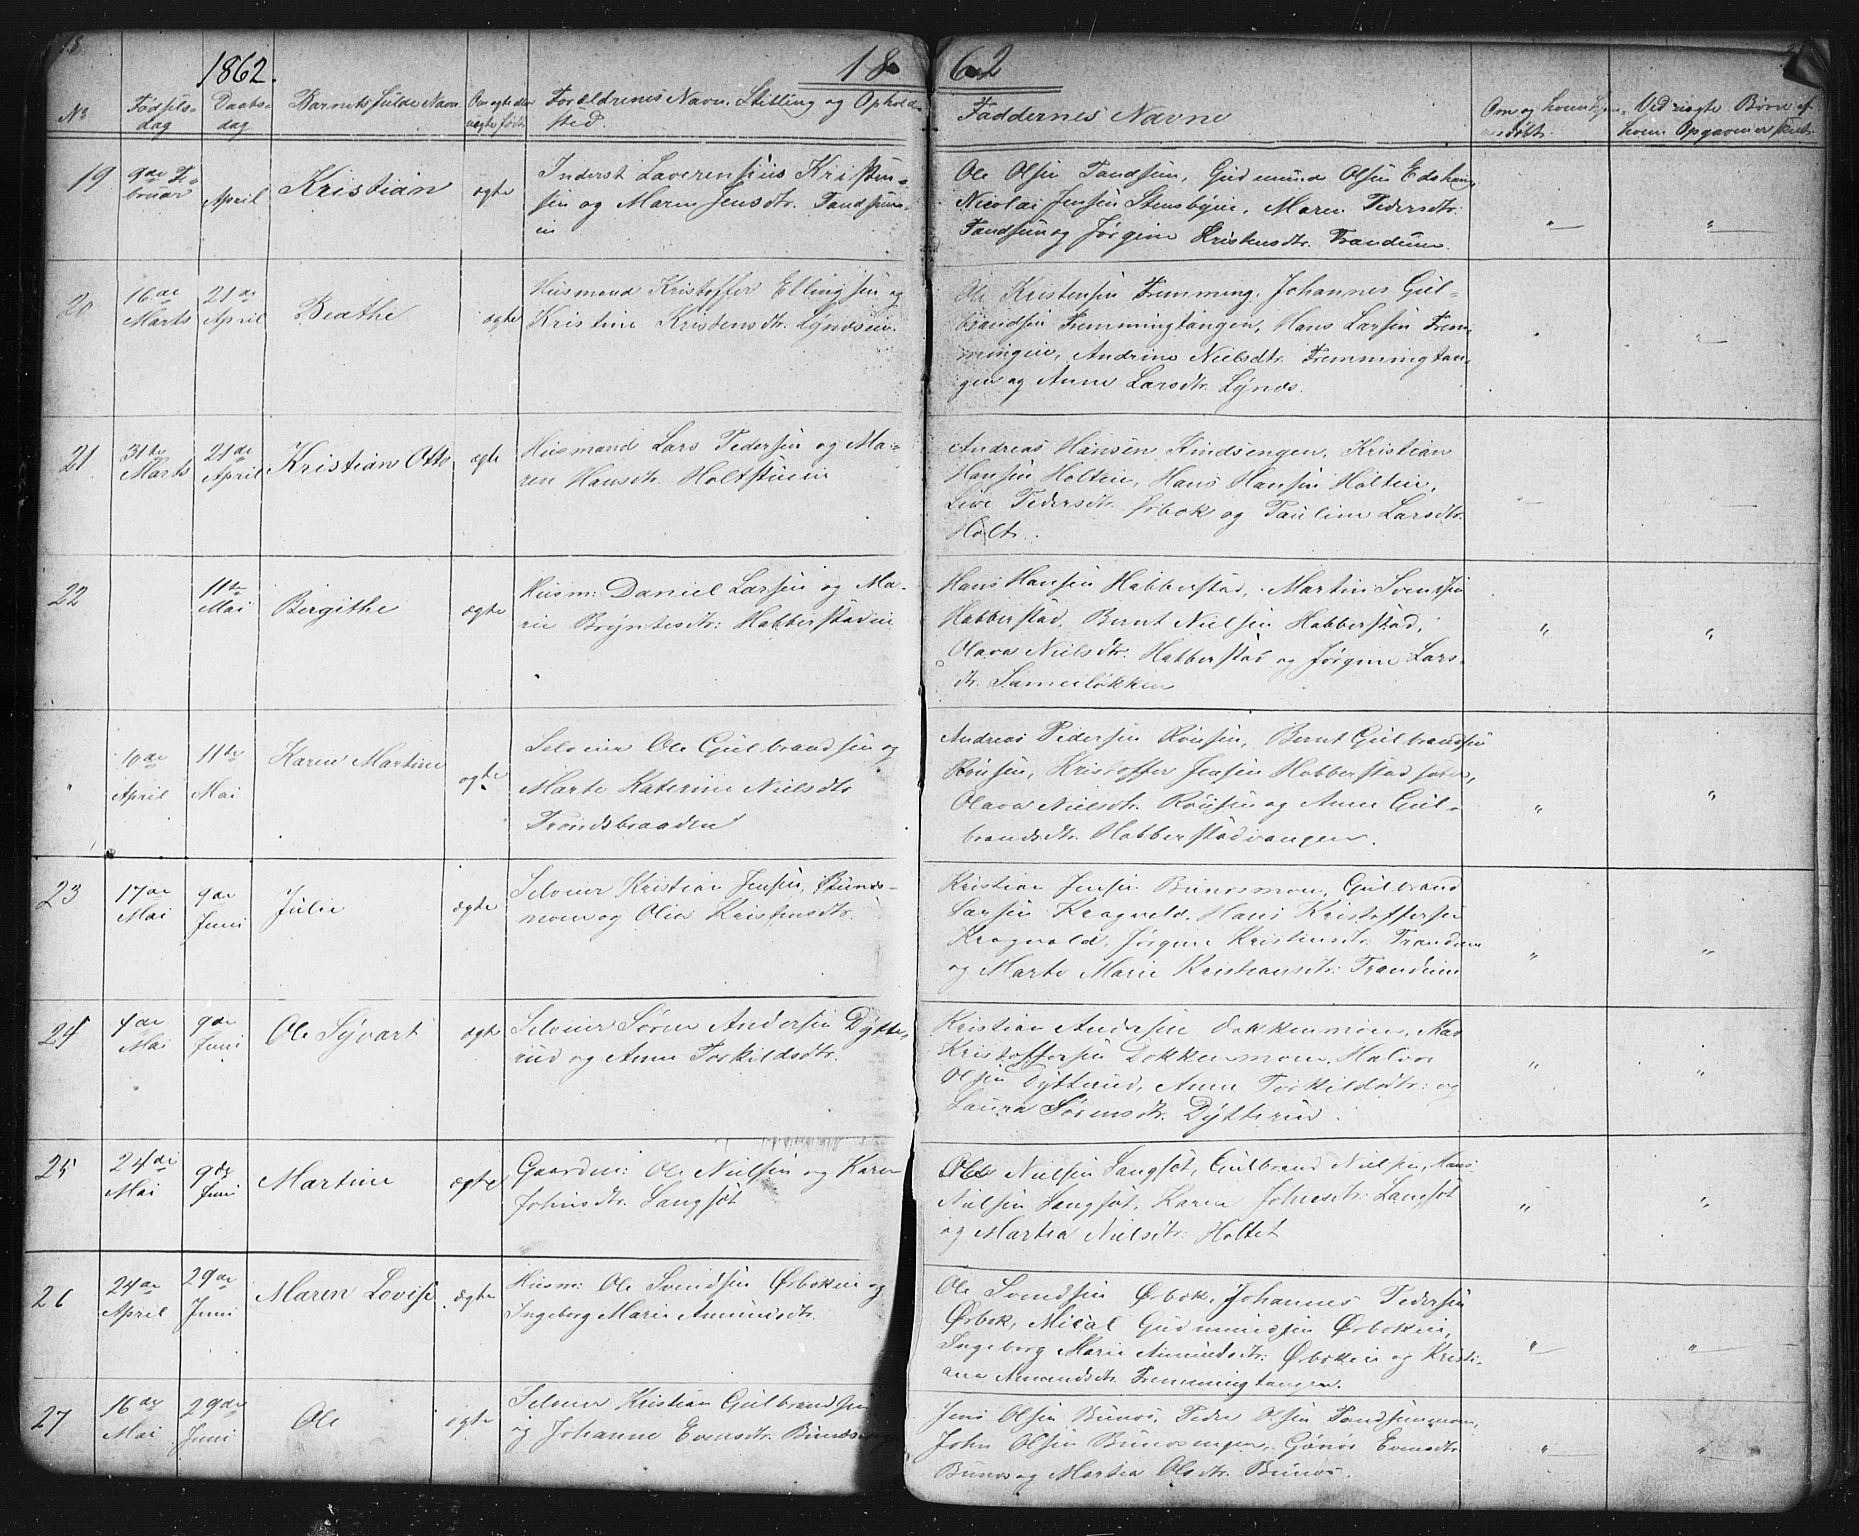 18
1862.
18 62
No
Fødsels-
dag
Daabs-
dag
Barnets fulde Navn
Om ægte eller
uægte født
Forældrenes Navn, Stilling og Opholds-
sted.
Faddernes Navne
Om og hvem hjem-
medøbt.
Ved uægte Børn af
hvem Opgaven er skeet.
19
9de Fe-
bruar
April
Kristian
ægte
Inderst Laverensius Kristen-
sen og Maren Jensdtr. Tandsen-
ei
Ole Olsen Tandsen, Gudmund Olsen
Nicolai Jensen Stensbyeie, Maren Pedersdtr.
Tandsen og Jørgine Kristensdtr. Trandum.
20
16de
Marts
21de
April
Beathe
ægte
Husmand Kristoffer Ellingsen og
Kristine Kristensdtr. Lyndseie.
Ole Kristensen Fremming, Johannes Gul-
brandsen Fremmingtangen, Hans Larsen Frem-
mingeie, Andrine Nielsdtr. Fremmingtan-
gen og Anne Larsdtr. Lynds.
21
31te
Marts
21de
April
Kristian Otto
ægte
Husmand Lars Pedersen og Ma-
ren Hansdtr. Holtstueie
Andreas Hansen Kindsengen, Kristian
Hansen Holteie, Hans Hansen Holteie,
Live Pedersdtr. Ørbok og Pauline Larsdtr.
Holt.
22
11te
Mai
Bergithe
ægte
Husm: Daniel Larsen og Ma-
rie Bryntesdtr: Habberstadeie
Hans Hansen Habberstad, Martin Svendsen
Habberstad, Bernt Nielsen Habberstad,
Olava Nielsdtr. Habberstad og Jørgine Lars-
dtr. Lamerløkken
"
10de
April
11te
Mai
Karen Martine
ægte
Selveier Ole Gulbrandsen og
Marte Katerine Nielsdtr
Trondsbraaden
Andreas Pedersen Rousen, Bernt Gulbrandsen
Rousen, Kristoffer Jensen Habberstad
Olava Nielsdtr. Rousen og Anne Gul-
brandsdtr. Habberstadvangen.
23
17de
Mai
9de
Juni
Julie
ægte
Selveier Kristian Jensen, Bunds-
moen og Olia Kristensdtr.
Kristian Jensen Bunesmoen, Gulbrand
Larsen Kragvold, Hans Kristoffersen
Kragvold, Jørgine Kristensdtr. Trandum
og Marte Marie Kristiansdtr: Trandum
24
4de
Mai
9de
Juni
Ole Syvart
ægte
Selveier Søren Andersen Dytte-
rud og Anne Torkildsdtr.
Kristian Andersen Dokkenmoen,
Kristoffersen Dokkenmoen, Halvor
Olsen Dytterud, Anne Torkildsdtr: og
Laura Sørensdtr. Dytterud.
25
24de
Mai
9de
Juni
Martine
ægte
Gaardm: Ole Nielsen og Karen
Johnsdtr. Langset
Ole Nielsen Langset, Gulbrand Nielsen, Hans
Nielsen Langset, Karen Johnsdtr: Langset
og Martea Nielsdtr: Holtet
26
24de
April
29de
Juni
Maren Lovise
ægte
Husm: Ole Svendsen Ørbokeie og
Ingeborg Marie Amundsdtr.
Ole Svendsen Ørbok, Johannes Pedersen
Ørbok, Mical Gudmundsen Ørbokeie,
Ingeborg Marie Amundsdtr: Ørbokeie og Kristi-
ane Amundsdtr. Fremmingtangen.
27
16de
Mai
29de
Juni
Ole
ægte
Selveier Kristian Gulbrandsen
og Johanne Evensdtr. Bunds
Jens Olsen Bunes, Peder Olsen Tandsenmoen,
John Olsen Bunesengen, Gønør Evensdtr.
Bunes og Martea Olsdtr. Bunes.